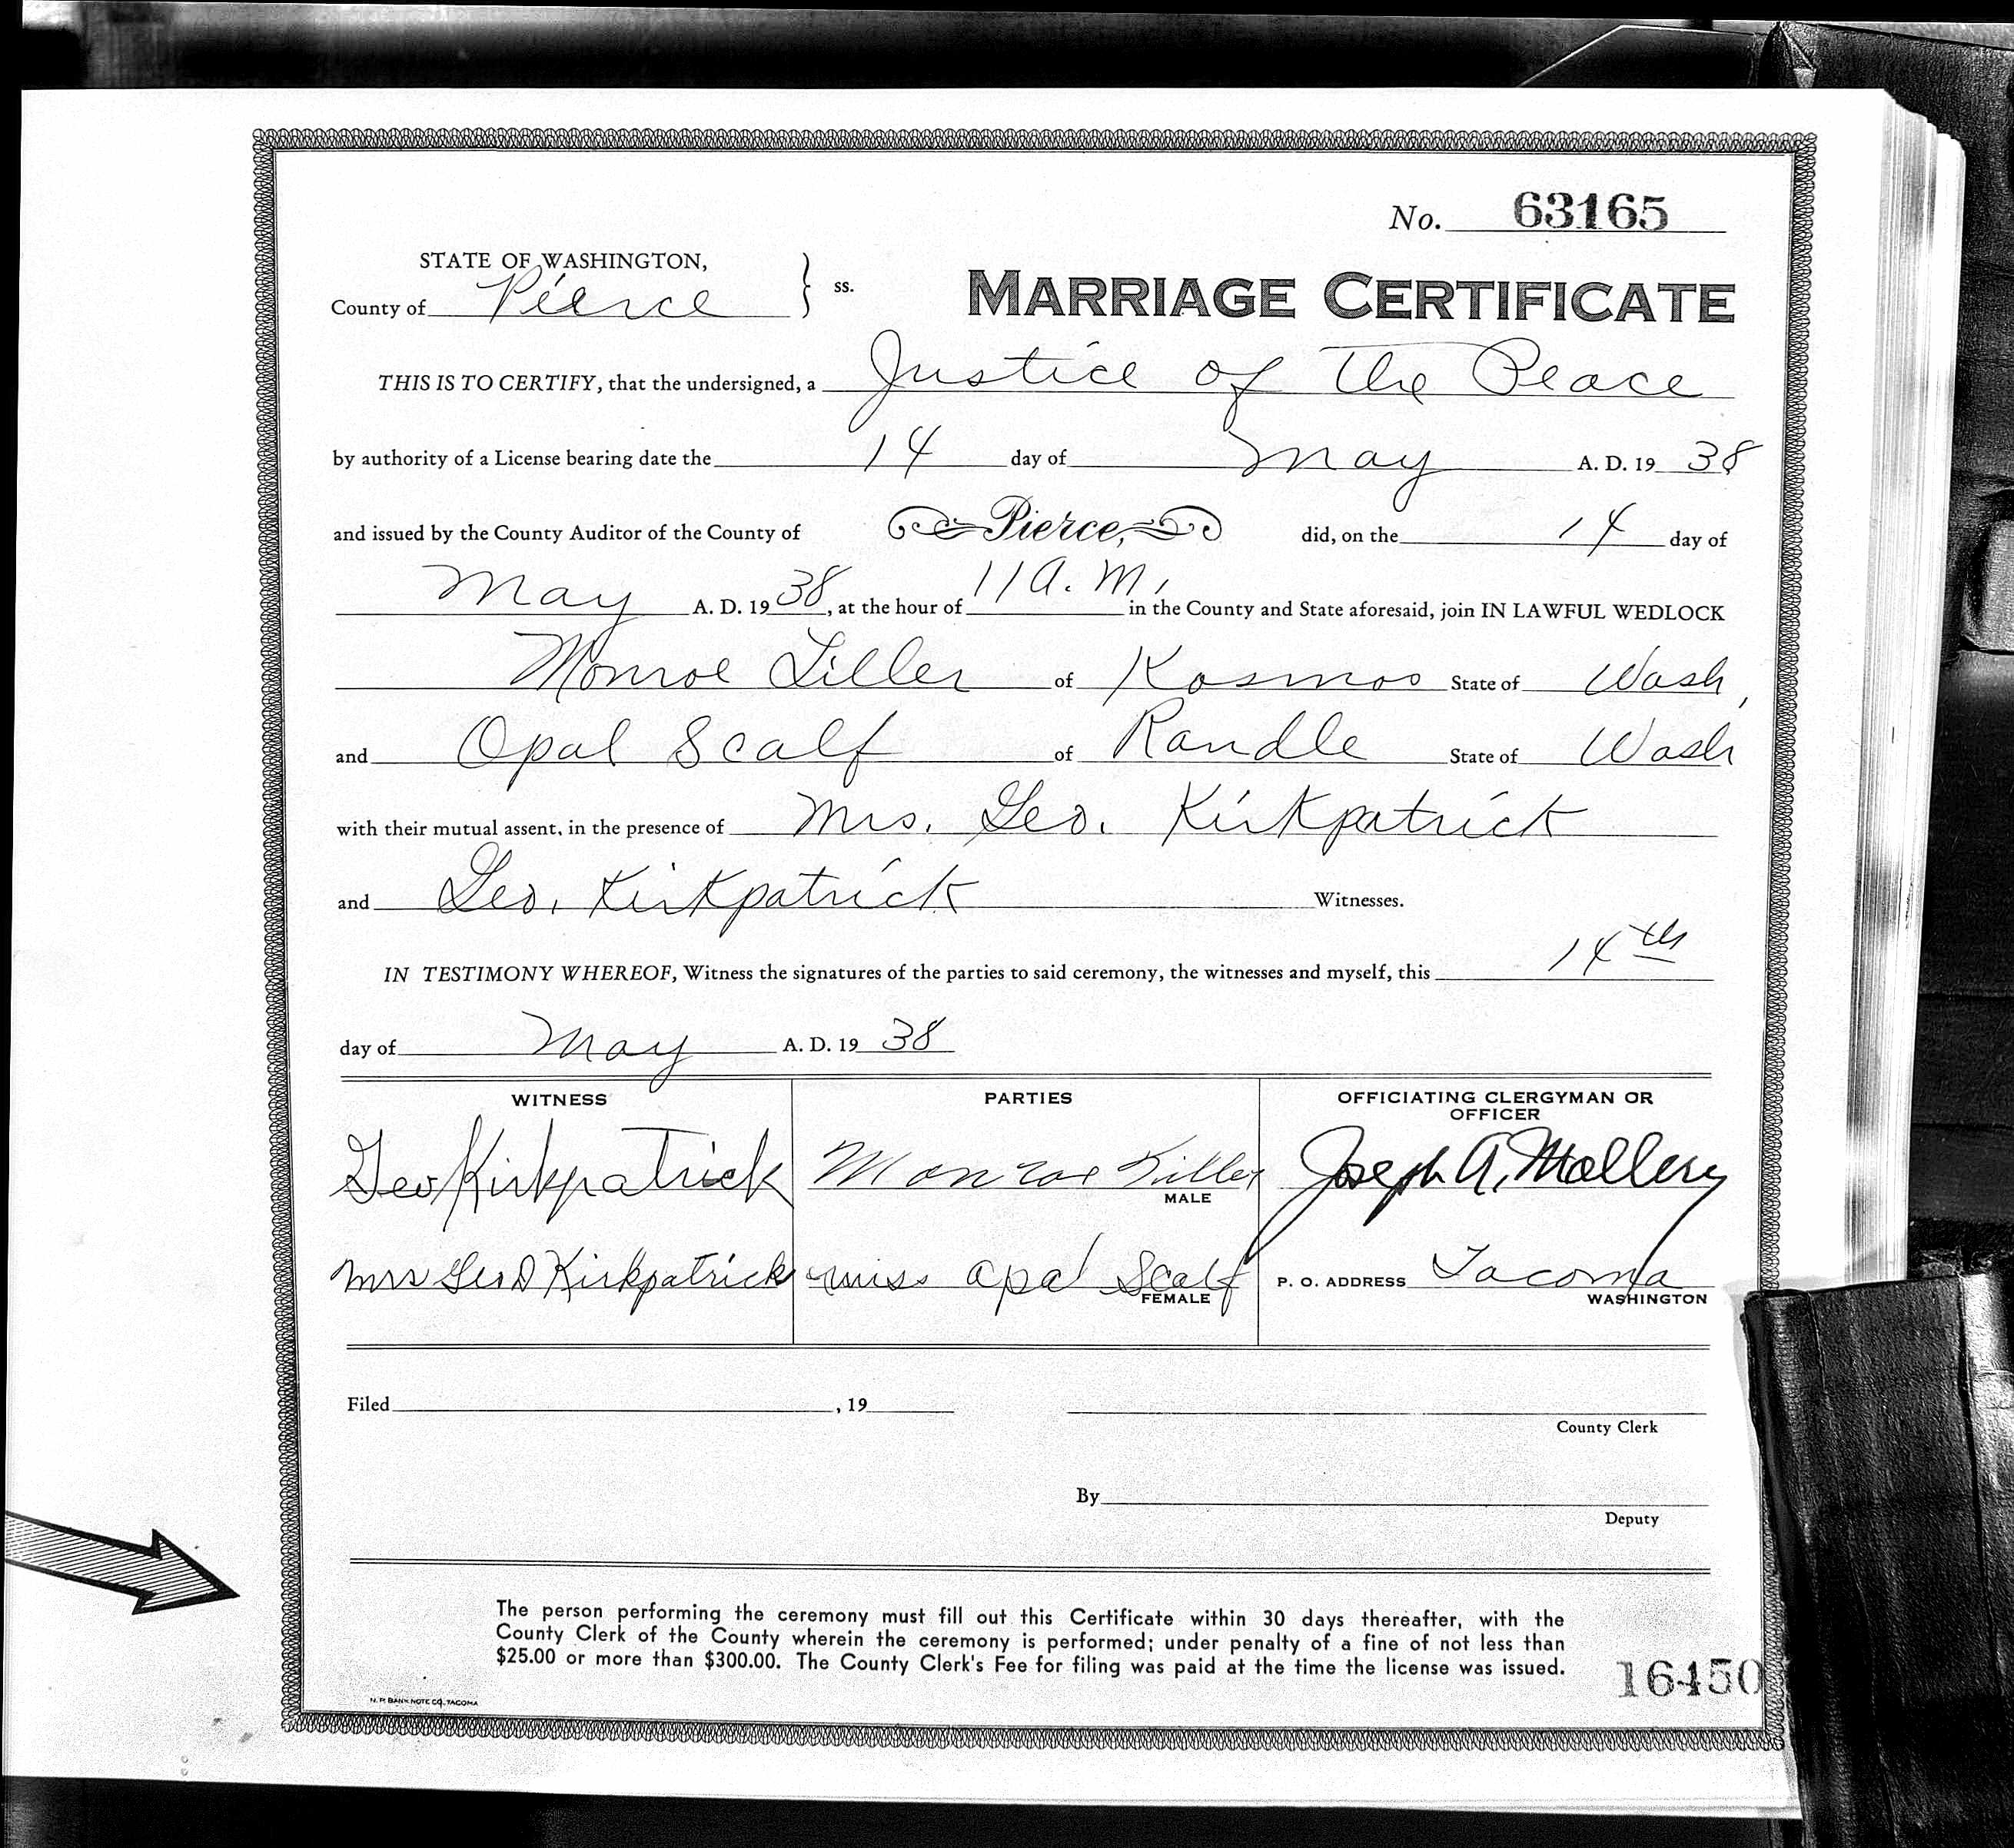 No. 63165
STATE OF WASHINGTON,
County of Pierce } ss.
MARRIAGE CERTIFICATE
THIS IS TO CERTIFY, that the undersigned, a Justice of the Peace
by authority of a License bearing date the 14 day of May A. D. 19 38
and issued by the County Auditor of the County of Pierce, did, on the 14 day of
May A. D. 19 38, at the hour of 11 A. M. in the County and State aforesaid, join IN LAWFUL WEDLOCK
Monroe Tiller of Kosmos State of Wash,
and Opal Scalf of Randle State of Wash
with their mutual assent, in the presence of Mrs. Geo. Kirkpatrick
and Geo. Kirkpatrick Witnesses.
IN TESTIMONY WHEREOF, Witness the signatures of the parties to said ceremony, the witnesses and myself, this 14th
day of May A. D. 19 38
WITNESS PARTIES OFFICIATING CLERGYMAN OR
OFFICER
Geo Kirkpatrick Monroe Tiller Joseph A. Mallery
MALE
Mrs Geo D Kirkpatrick miss Opal Scalf P. O. ADDRESS Tacoma
FEMALE WASHINGTON
Filed , 19
County Clerk
By
Deputy
The person performing the ceremony must fill out this Certificate within 30 days thereafter, with the
County Clerk of the County wherein the ceremony is performed; under penalty of a fine of not less than
$25.00 or more than $300.00. The County Clerk's Fee for filing was paid at the time the license was issued.
16450
N. P. BANK NOTE CO., TACOMA